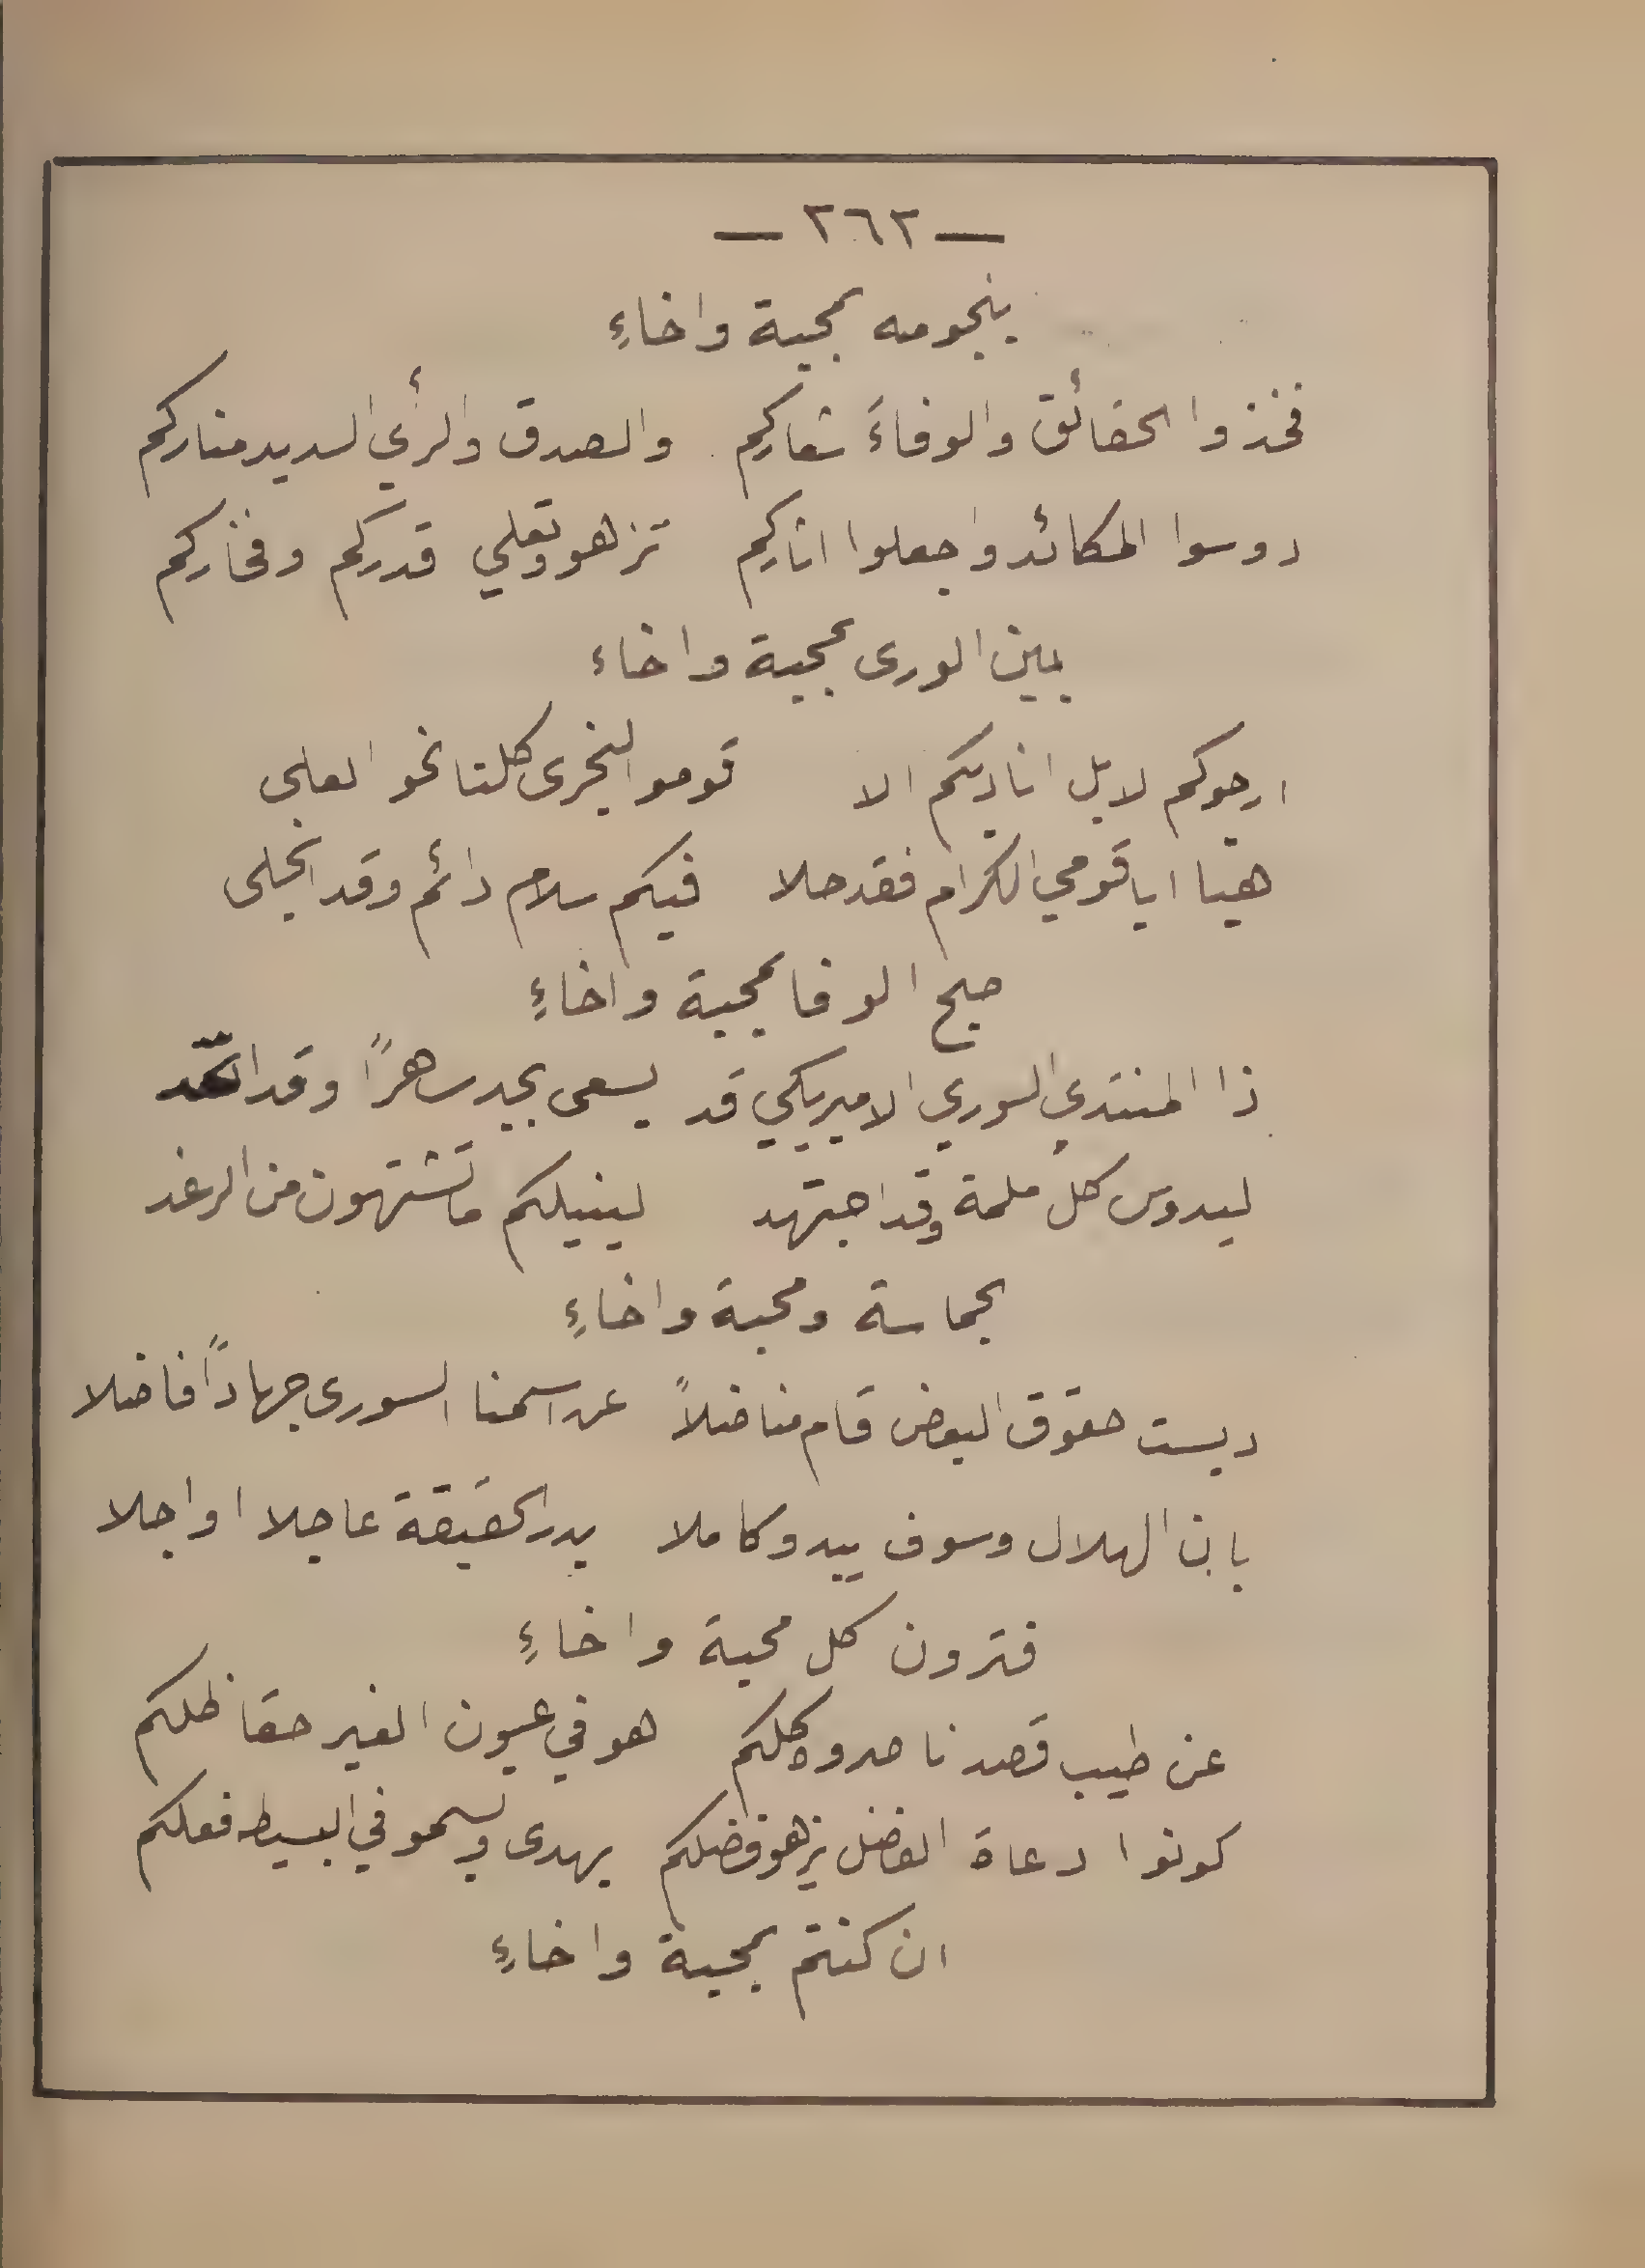 — ٢٦٢ —
بنجومه بمحبة واخاءِ
فخذوا الحقائق والوفاءَ شعاركم والصدق والرأي السديد مناركم
دوسوا المكائد واجعلوا اثاركم تزهو وتعلي قدركم وفخاركم
بين الورى بمحبة واخاء
ارجوكم لا بل اناديكم الا قوموا لنجرى كلنا نحو العلى
هيا ايا قومي الكرام فقد حلا فيكم سلام دائم وقد انجلى
صبح الوفا بمحبة واخاءِ
ذا المنتدي السوري الاميريكي قد يسعى بجد ساهرًا وقد اتّحد
ليدوس كل ملمة وقد اجتهد لينيلكم ما تشتهون من الرغد
بحماسة ومحبة واخاءِ
ديست حقوق البعض قام مناضلاً عن اسمنا السورى جهادًا فاضلا
بان الهلال وسوف يبدو كاملا بدر الحقيقة عاجلا او اجلا
فترون كل محبة واخاءِ
عن طيب قصدنا صدوه كلكم هو في عيون الغير حقا ظلكم
كونوا دعاة الفضل يزهو فضلكم يهدى ويسمو في البسيطه فعلكم
ان كنتم بمحبة واخاءِ